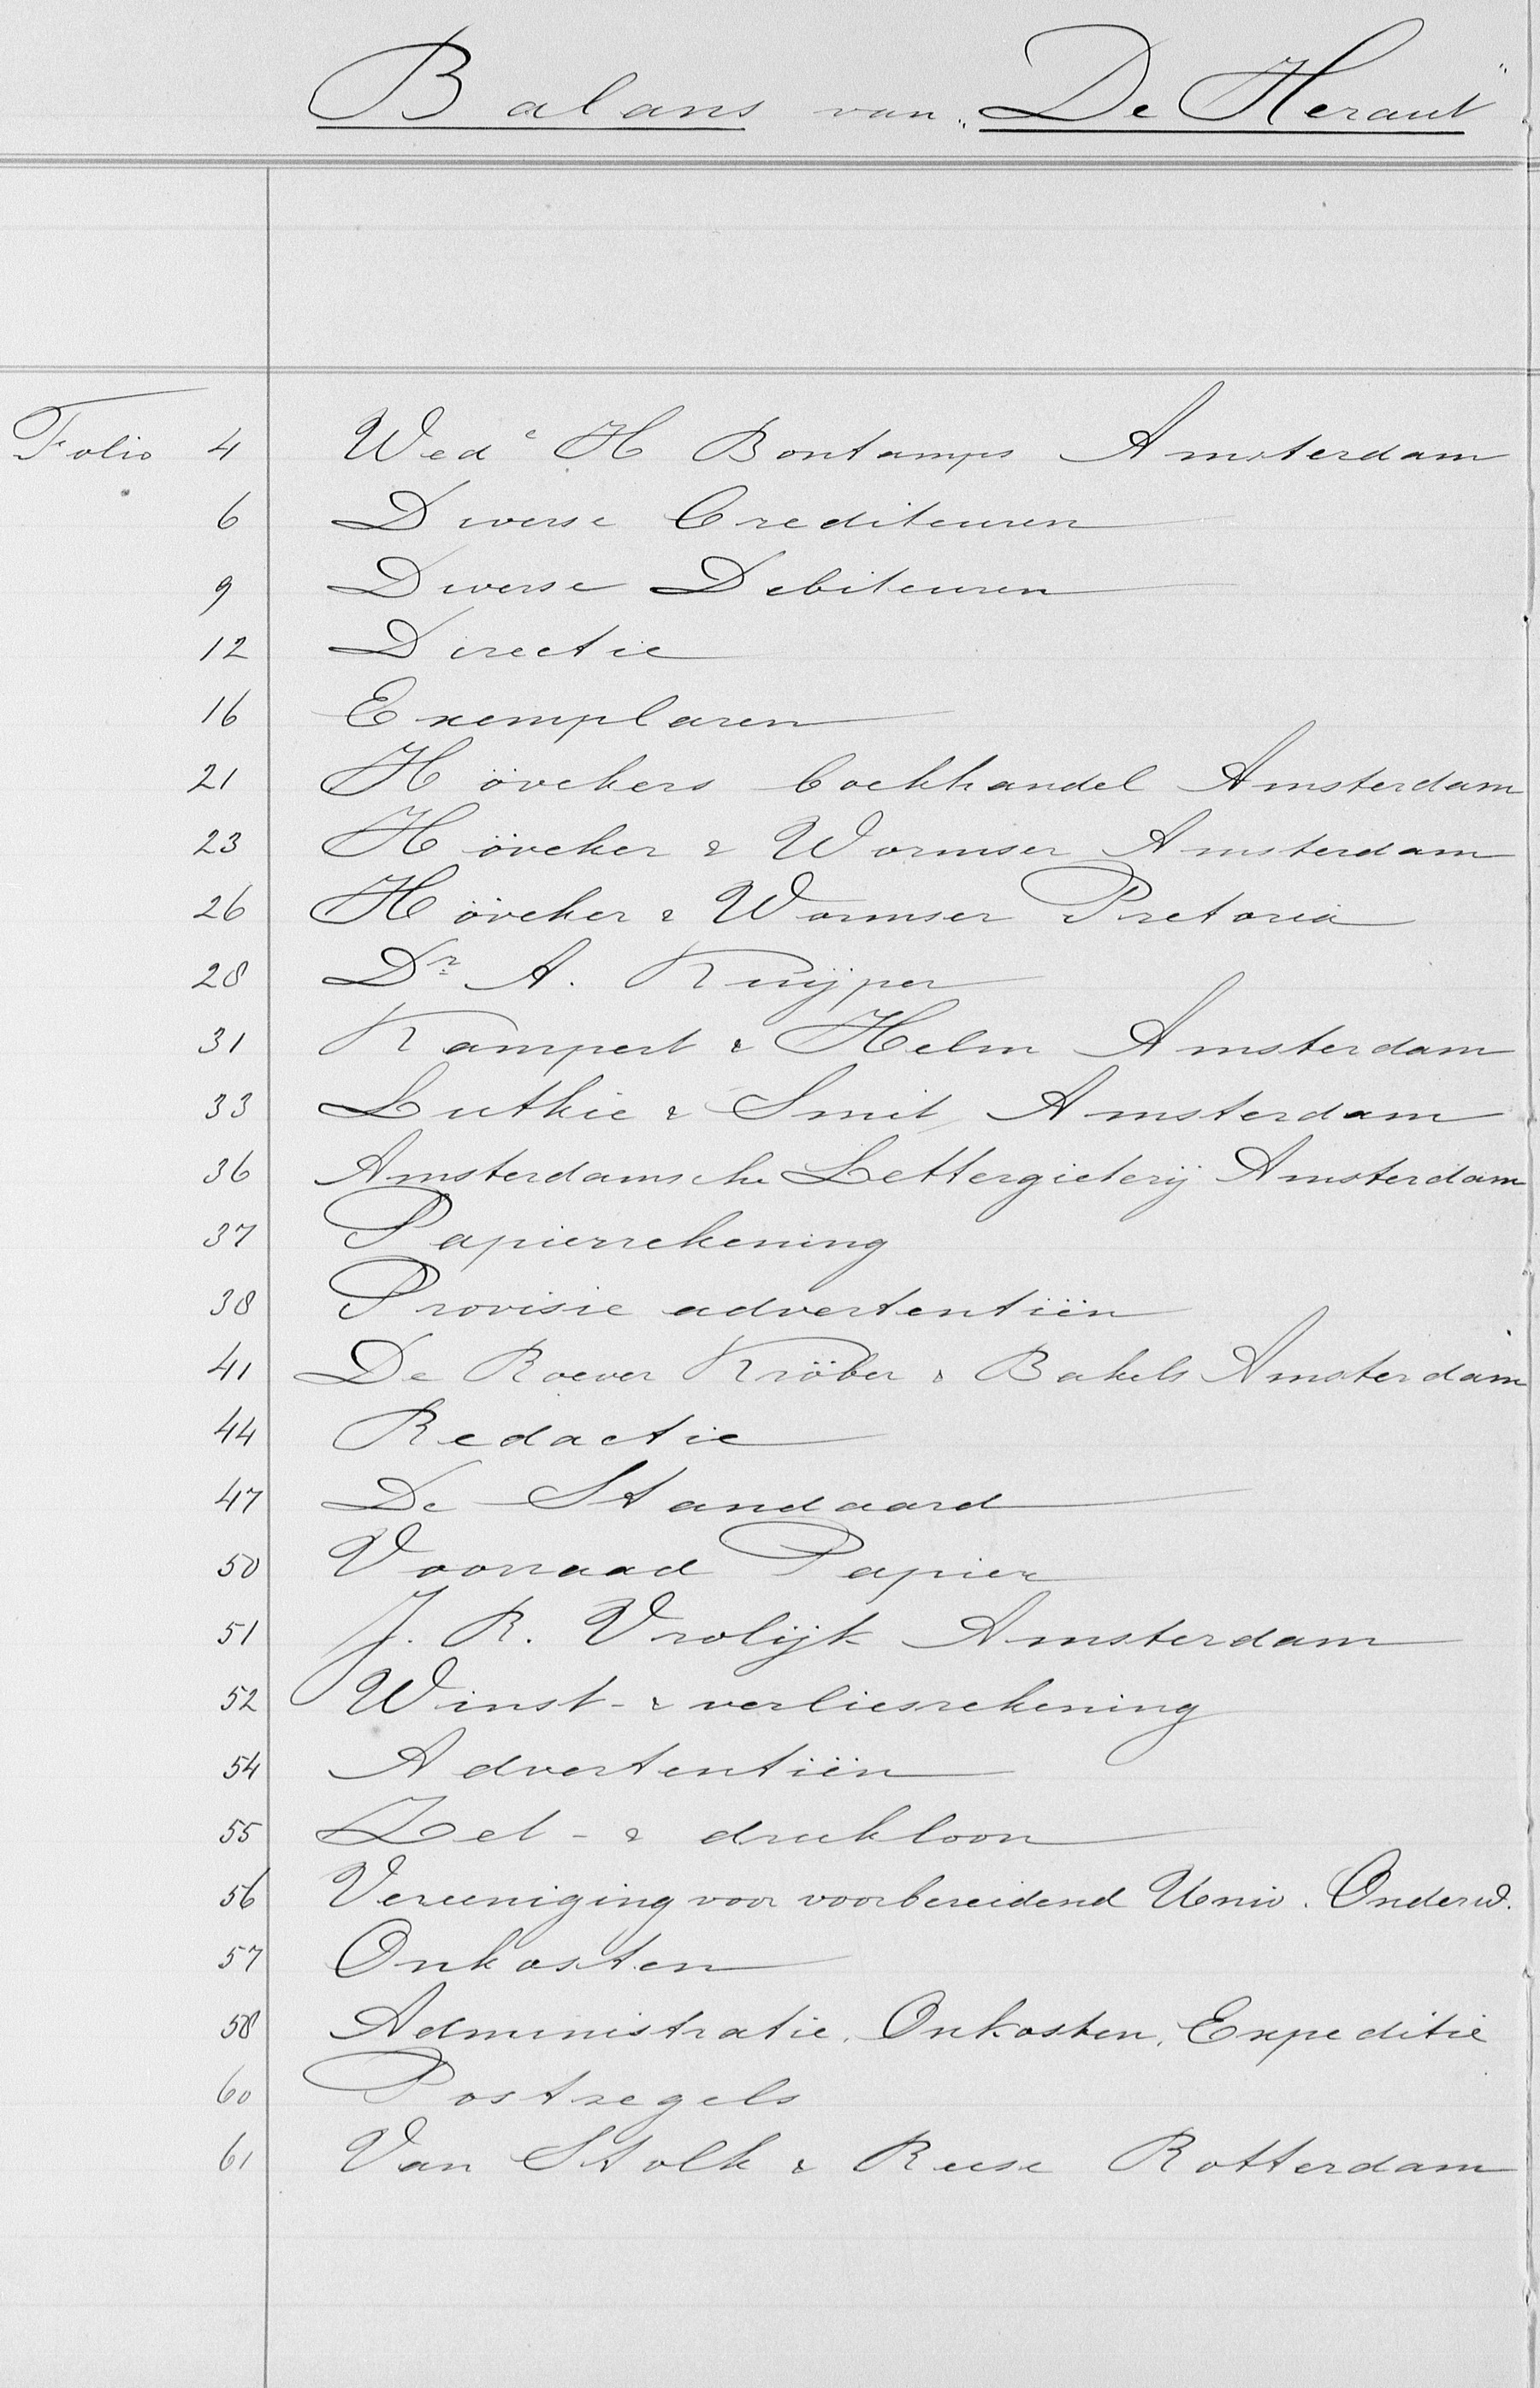 Balans van „De Heraut"
Folio 4 Wedᵉ H Bontamps Amsterdam
6 Diverse Crediteuren
9 Diverse Debiteuren
12 Directie
16 Exemplaren
21 Hövekers boekhandel Amsterdam
23 Höveker & Wormser Amsterdam
26 Höveker & Wormser Pretoria
28 Dr A. Kuijper
31 Kampert & Helm Amsterdam
33 Luthie & Smit Amsterdam
36 Amsterdamsche Lettergieterij Amsterdam
37 Papierrekening
38 Provisie advertentiën
41 De Roever Kröber & Bakels Amsterdam
44 Redactie
47 De Standaard
50 Voorraad Papier
51 J. R. Vrolijk Amsterdam
52 Winst- & verliesrekening
54 Advertentiën
55 Zet- & drukloon
56 Vereeniging voor voorbereidend Univ. Onderw.
57 Onkosten
58 Administratie. Onkosten. Expeditie
60 Postzegels
61 Van Stolk & Reese Rotterdam